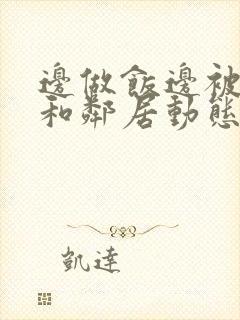 邊做飯邊被
和鄰居動態
凱達